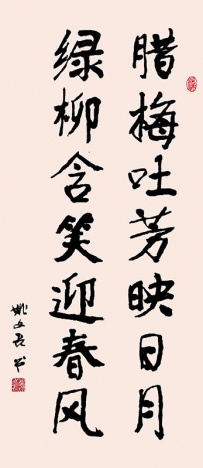 腊梅吐芳映日月
绿柳含笑迎春风